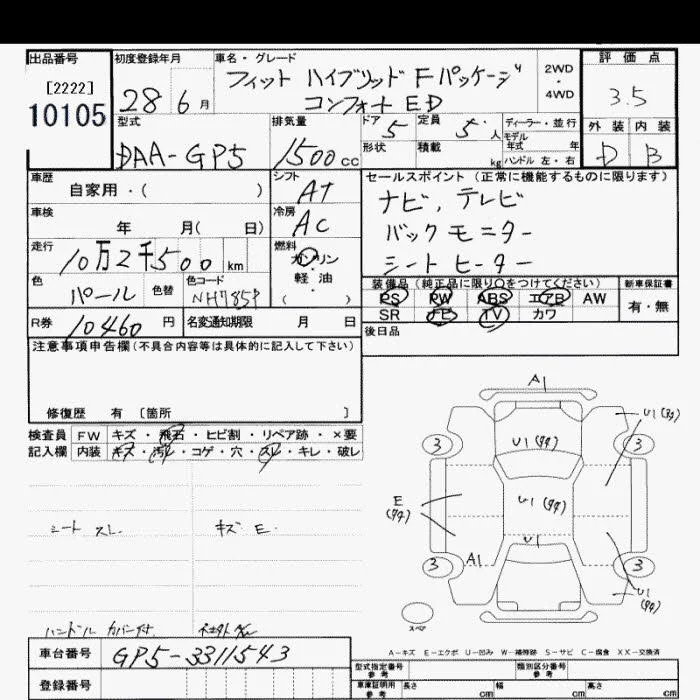 出品番号 初度登録年月 車名・グレード 評価点
[2222] フィット ハイブリッド Fパッケージ 2WD
10105 28 6月 コンフォート ED ・ 4WD 3.5
型式 排気量 ドア 定員 ディーラー・並行 外装 内装
DAA-GP5 1500cc 5 5人 モデル年式 年 D B
形状 積載 kg ハンドル 左・右
車歴 シフト セールスポイント(正常に機能するものに限ります)
自家用・( ) AT ナビ, テレビ
車検 冷房 バックモニター
年 月( 日) AC シートヒーター
走行 燃料
10万2千500km ガソリン・軽油( )
色 色替 色コード 装備品(純正品に限り○をつけてください) 新車保証書
パール NH785P PS PW ABS エアB AW 有・無
R券 10460円 名変通知期限 月 日 SR ナビ TV カワ
後日品
注意事項申告欄(不具合内容等は具体的に記入して下さい)
修復歴 有 [箇所 ]
検査員 FW キズ・飛石・ヒビ割・リペア跡・×要
記入欄 内装 キズ・汚レ・コゲ・穴・スレ・キレ・破レ
シート スレ キズ E
ハンドル カバー付
A1
U1
3 U1(タタ) 3
E(タタ) U1(タタ)
A1 U1
3 3
U1(タタ)
スペア
A-キズ E-エクボ U-凹み W-補修跡 S-サビ C-腐食 XX-交換済
車台番号 GP5-3311543
型式指定番号 参考 類別区分番号 参考
登録番号
車庫証明用 参考 長さ cm 幅 cm 高さ cm